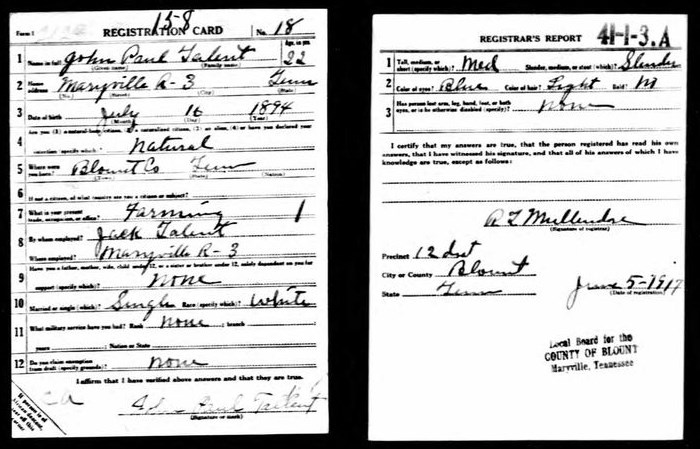 Form 1
15-8
REGISTRATION CARD No. 18
1 Name in full John Paul Talent Age, in yrs. 22
(Given name) (Family name)
2 Home address Maryville R-3 Tenn
(No.) (Street) (City) (State)
3 Date of birth July 16 1894
(Month) (Day) (Year)
4 Are you (1) a natural-born citizen, (2) a naturalized citizen, (3) an alien, (4) or have you declared your
intention (specify which)? Natural
5 Where were you born? Blount Co Tenn
(Town) (State) (Nation)
6 If not a citizen, of what country are you a citizen or subject?
7 What is your present trade, occupation, or office? Farming 1
8 By whom employed? Jack Talent
Where employed? Maryville R-3
9 Have you a father, mother, wife, child under 12, or a sister or brother under 12, solely dependent on you for
support (specify which)? None
10 Married or single (which)? Single Race (specify which)? White
11 What military service have you had? Rank None ; branch
years Nation or State
12 Do you claim exemption from draft (specify grounds)? None
I affirm that I have verified above answers and that they are true.
John Paul Tallent
(Signature or mark)
If person is of African descent, tear off this corner
REGISTRAR'S REPORT 41-1-3.A
1 Tall, medium, or short (specify which)? Med Slender, medium, or stout (which)? Slender
2 Color of eyes? Blue Color of hair? Light Bald? No
3 Has person lost arm, leg, hand, foot, or both
eyes, or is he otherwise disabled (specify)? None
I certify that my answers are true, that the person registered has read his own
answers, that I have witnessed his signature, and that all of his answers of which I have
knowledge are true, except as follows:
(Signature of registrar)
Precinct 12 dst
City or County Blount
State Tenn June 5-1917
(Date of registration)
Local Board for the
COUNTY OF BLOUNT
Maryville, Tennessee